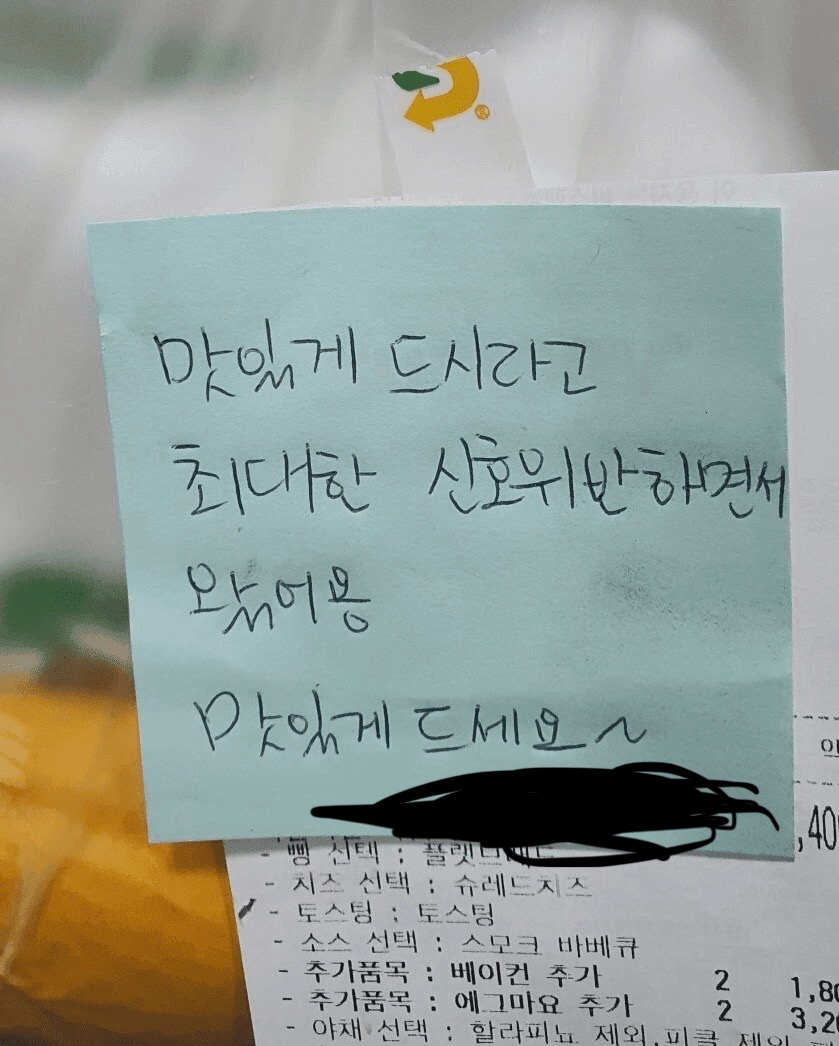 맛있게 드시라고
최대한 신호위반하면서
왔어용
맛있게 드세요~
,40
- 빵 선택 : 플랫브레드
- 치즈 선택 : 슈레드치즈
- 토스팅 : 토스팅
- 소스 선택 : 스모크 바베큐
- 추가품목 : 베이컨 추가 2 1,80
- 추가품목 : 에그마요 추가 2 3,20
- 야채 선택 : 할라피뇨 제외,피클 제외